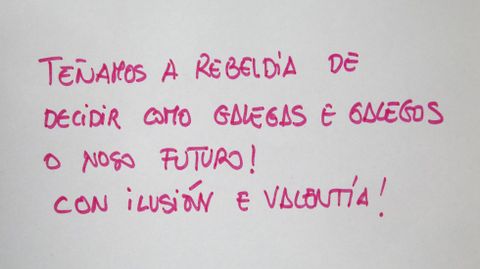 TEÑAMOS A REBELDÍA DE
DECIDIR COMO GALEGAS E GALEGOS
O NOSO FUTURO!
CON ILUSIÓN E VALENTÍA!